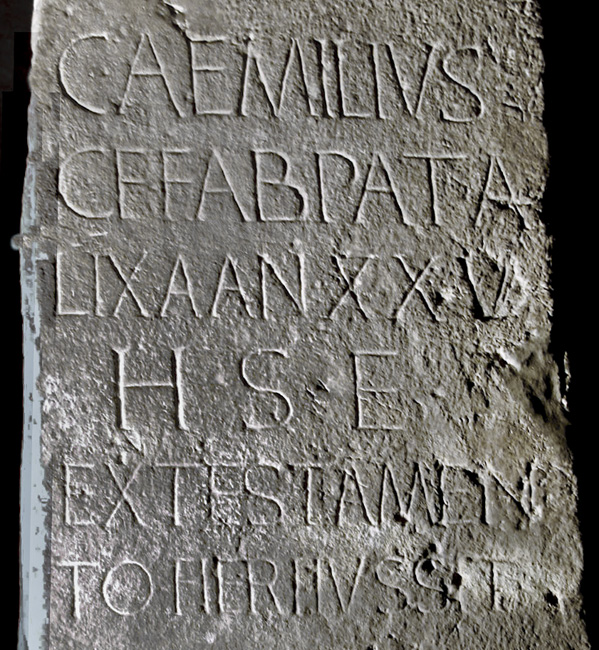 CAEMILIVS
CFFABPATA
LIXAANXXV
H S E
EXTESTAMEN
TO HERIVSSIT